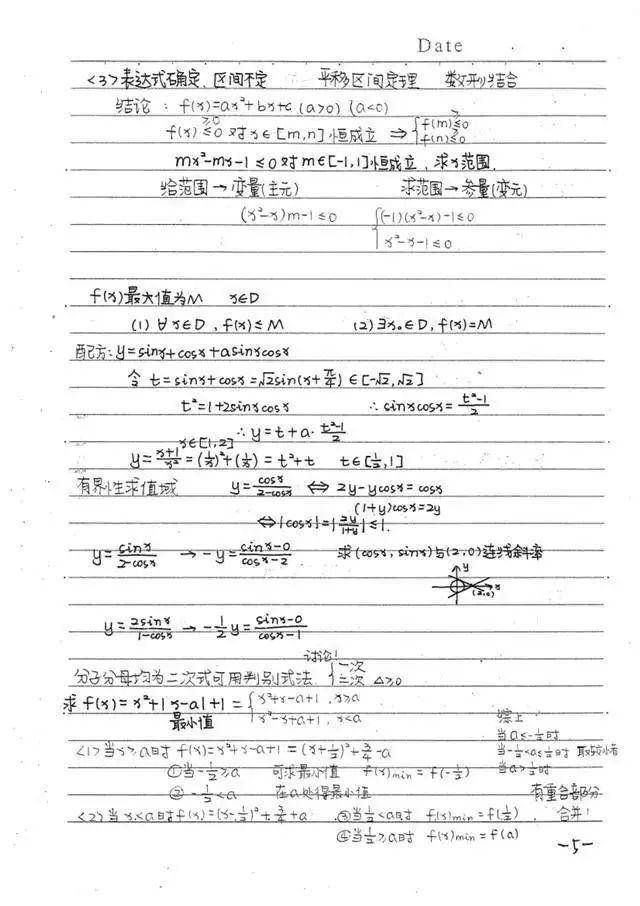 Date
<3>表达式确定、区间不定 平移区间定理 数形结合
结论：f(x)=ax²+bx+c (a>0) (a<0)
f(x) ≥0 ≤0 对x∈[m,n]恒成立 ⇒ { f(m) ≥ ≤0
f(n) ≥ ≤0
mx²-mx-1≤0对m∈[-1,1]恒成立，求x范围.
给范围→变量(主元) 求范围→参量(变元)
(x²-x)m-1≤0 { (-1)(x²-x)-1≤0
x²-x-1≤0
f(x)最大值为M x∈D
(1) ∀x∈D, f(x)≤M (2)∃x₀∈D, f(x)=M
配方: y=sinx+cosx+asinxcosx
令 t=sinx+cosx=√2sin(x+π/4)∈[-√2,√2]
t²=1+2sinxcosx ∴ sinxcosx=(t²-1)/2
∴y=t+a·(t²-1)/2
x∈[1,2]
y=(x+1)/x²=(1/x)²+(1/x)=t²+t t∈[1/2,1]
有界性求值域 y=cosx/(2-cosx) ⇔ 2y-ycosx=cosx
(1+y)cosx=2y
⇔|cosx|=|2y/(1+y)|≤1.
y=sinx/(2-cosx) → -y=(sinx-0)/(cosx-2) 求(cosx, sinx)与(2,0)连线斜率
y
x
(2,0)
y=2sinx/(1-cosx) → -1/2 y=(sinx-0)/(cosx-1)
讨论!
分子分母均为二次式可用判别式法. { 一次
二次 Δ≥0
求 f(x)=x²+|x-a|+1= { x²+x-a+1, x≥a
最小值 x²-x+a+1, x<a
综上
<1>当x≥a时 f(x)=x²+x-a+1=(x+1/2)²+3/4-a
当a≤-1/2时
当-1/2<a≤1/2时 取较小者
当a>1/2时
①当-1/2≥a 可求最小值 f(x)min=f(-1/2)
② -1/2<a 在a处得最小值
有重合部分
<2>当x<a时f(x)=(x-1/2)²+3/4+a ③当1/2<a时 f(x)min=f(1/2)， 合并!
④当1/2≥a时 f(x)min=f(a)
-5-